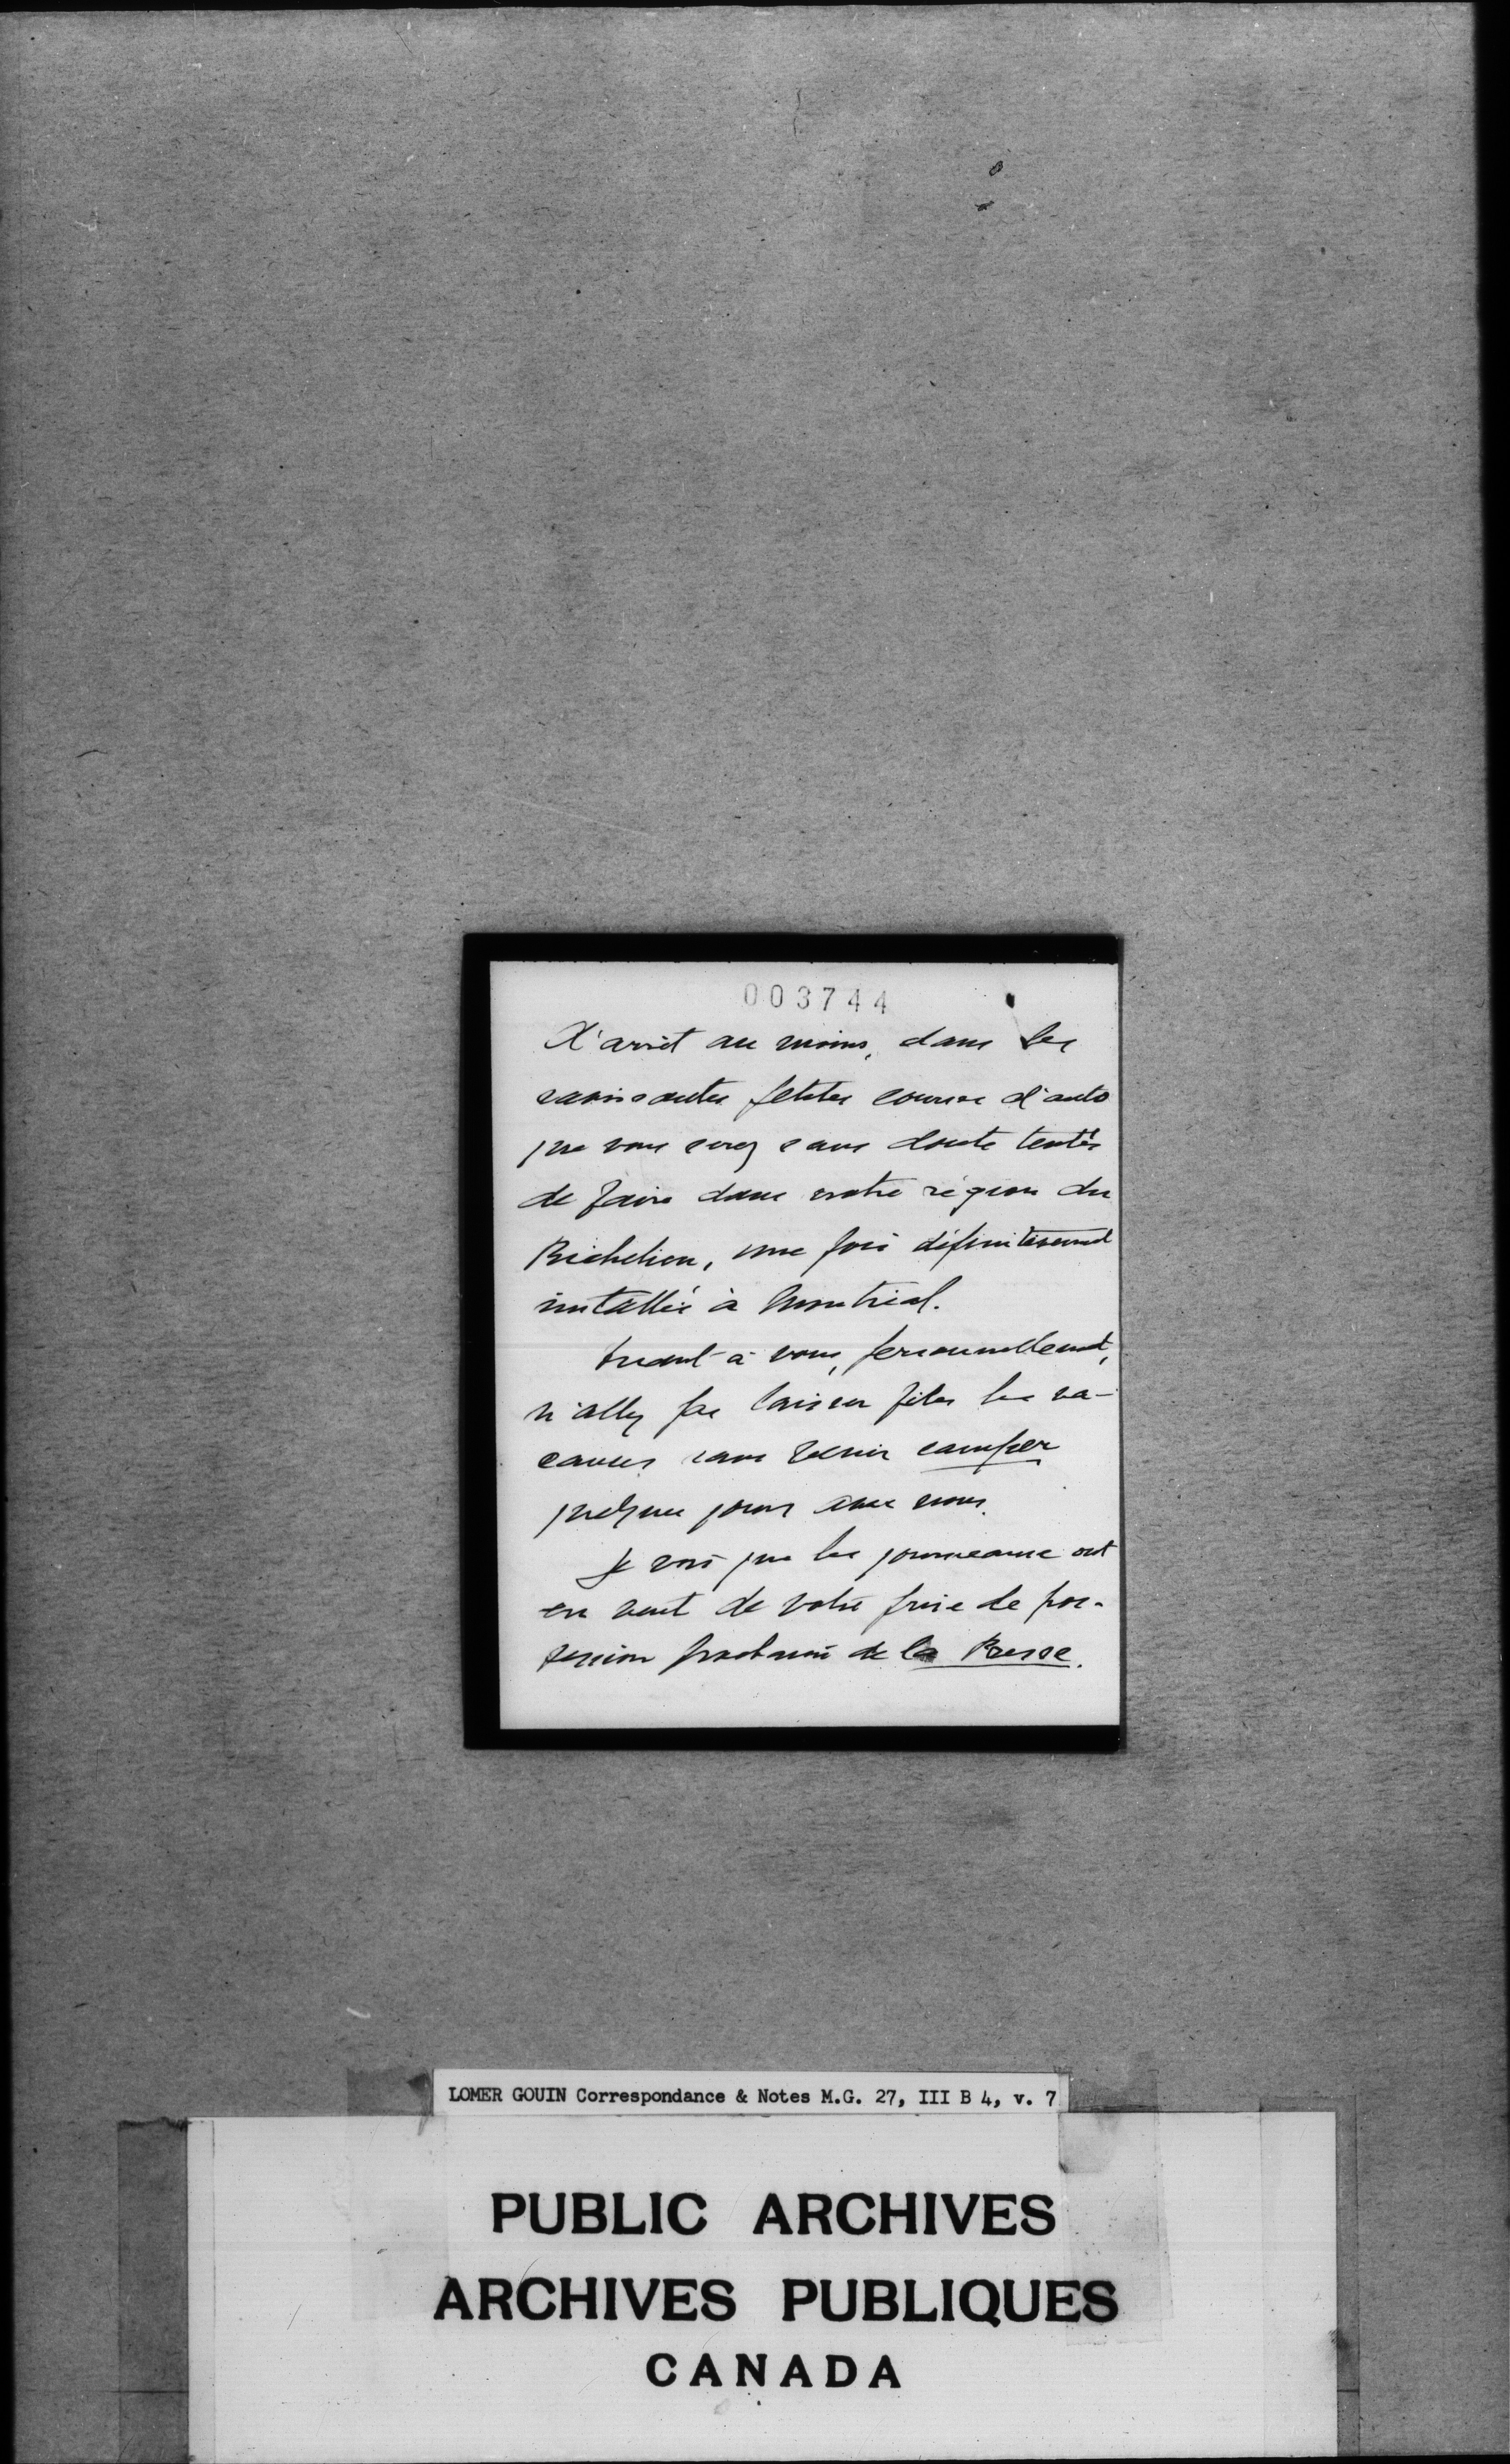 003744
d'arrêt au moins, dans les
ravissantes petites courses d'auto
que vous serez sans doute tentés
de faire dans notre région du
Richelieu, une fois définitivement
installés à Montréal.
Quant à vous, personnellement,
n'allez pas laisser filer les va-
cances sans venir camper
quelques jours avec nous.
Je vois que les journaux ont
eu vent de votre prise de pos-
session prochaine de la Presse.
LOMER GOUIN Correspondance & Notes M.G. 27, III B 4, v. 7
PUBLIC ARCHIVES
ARCHIVES PUBLIQUES
CANADA